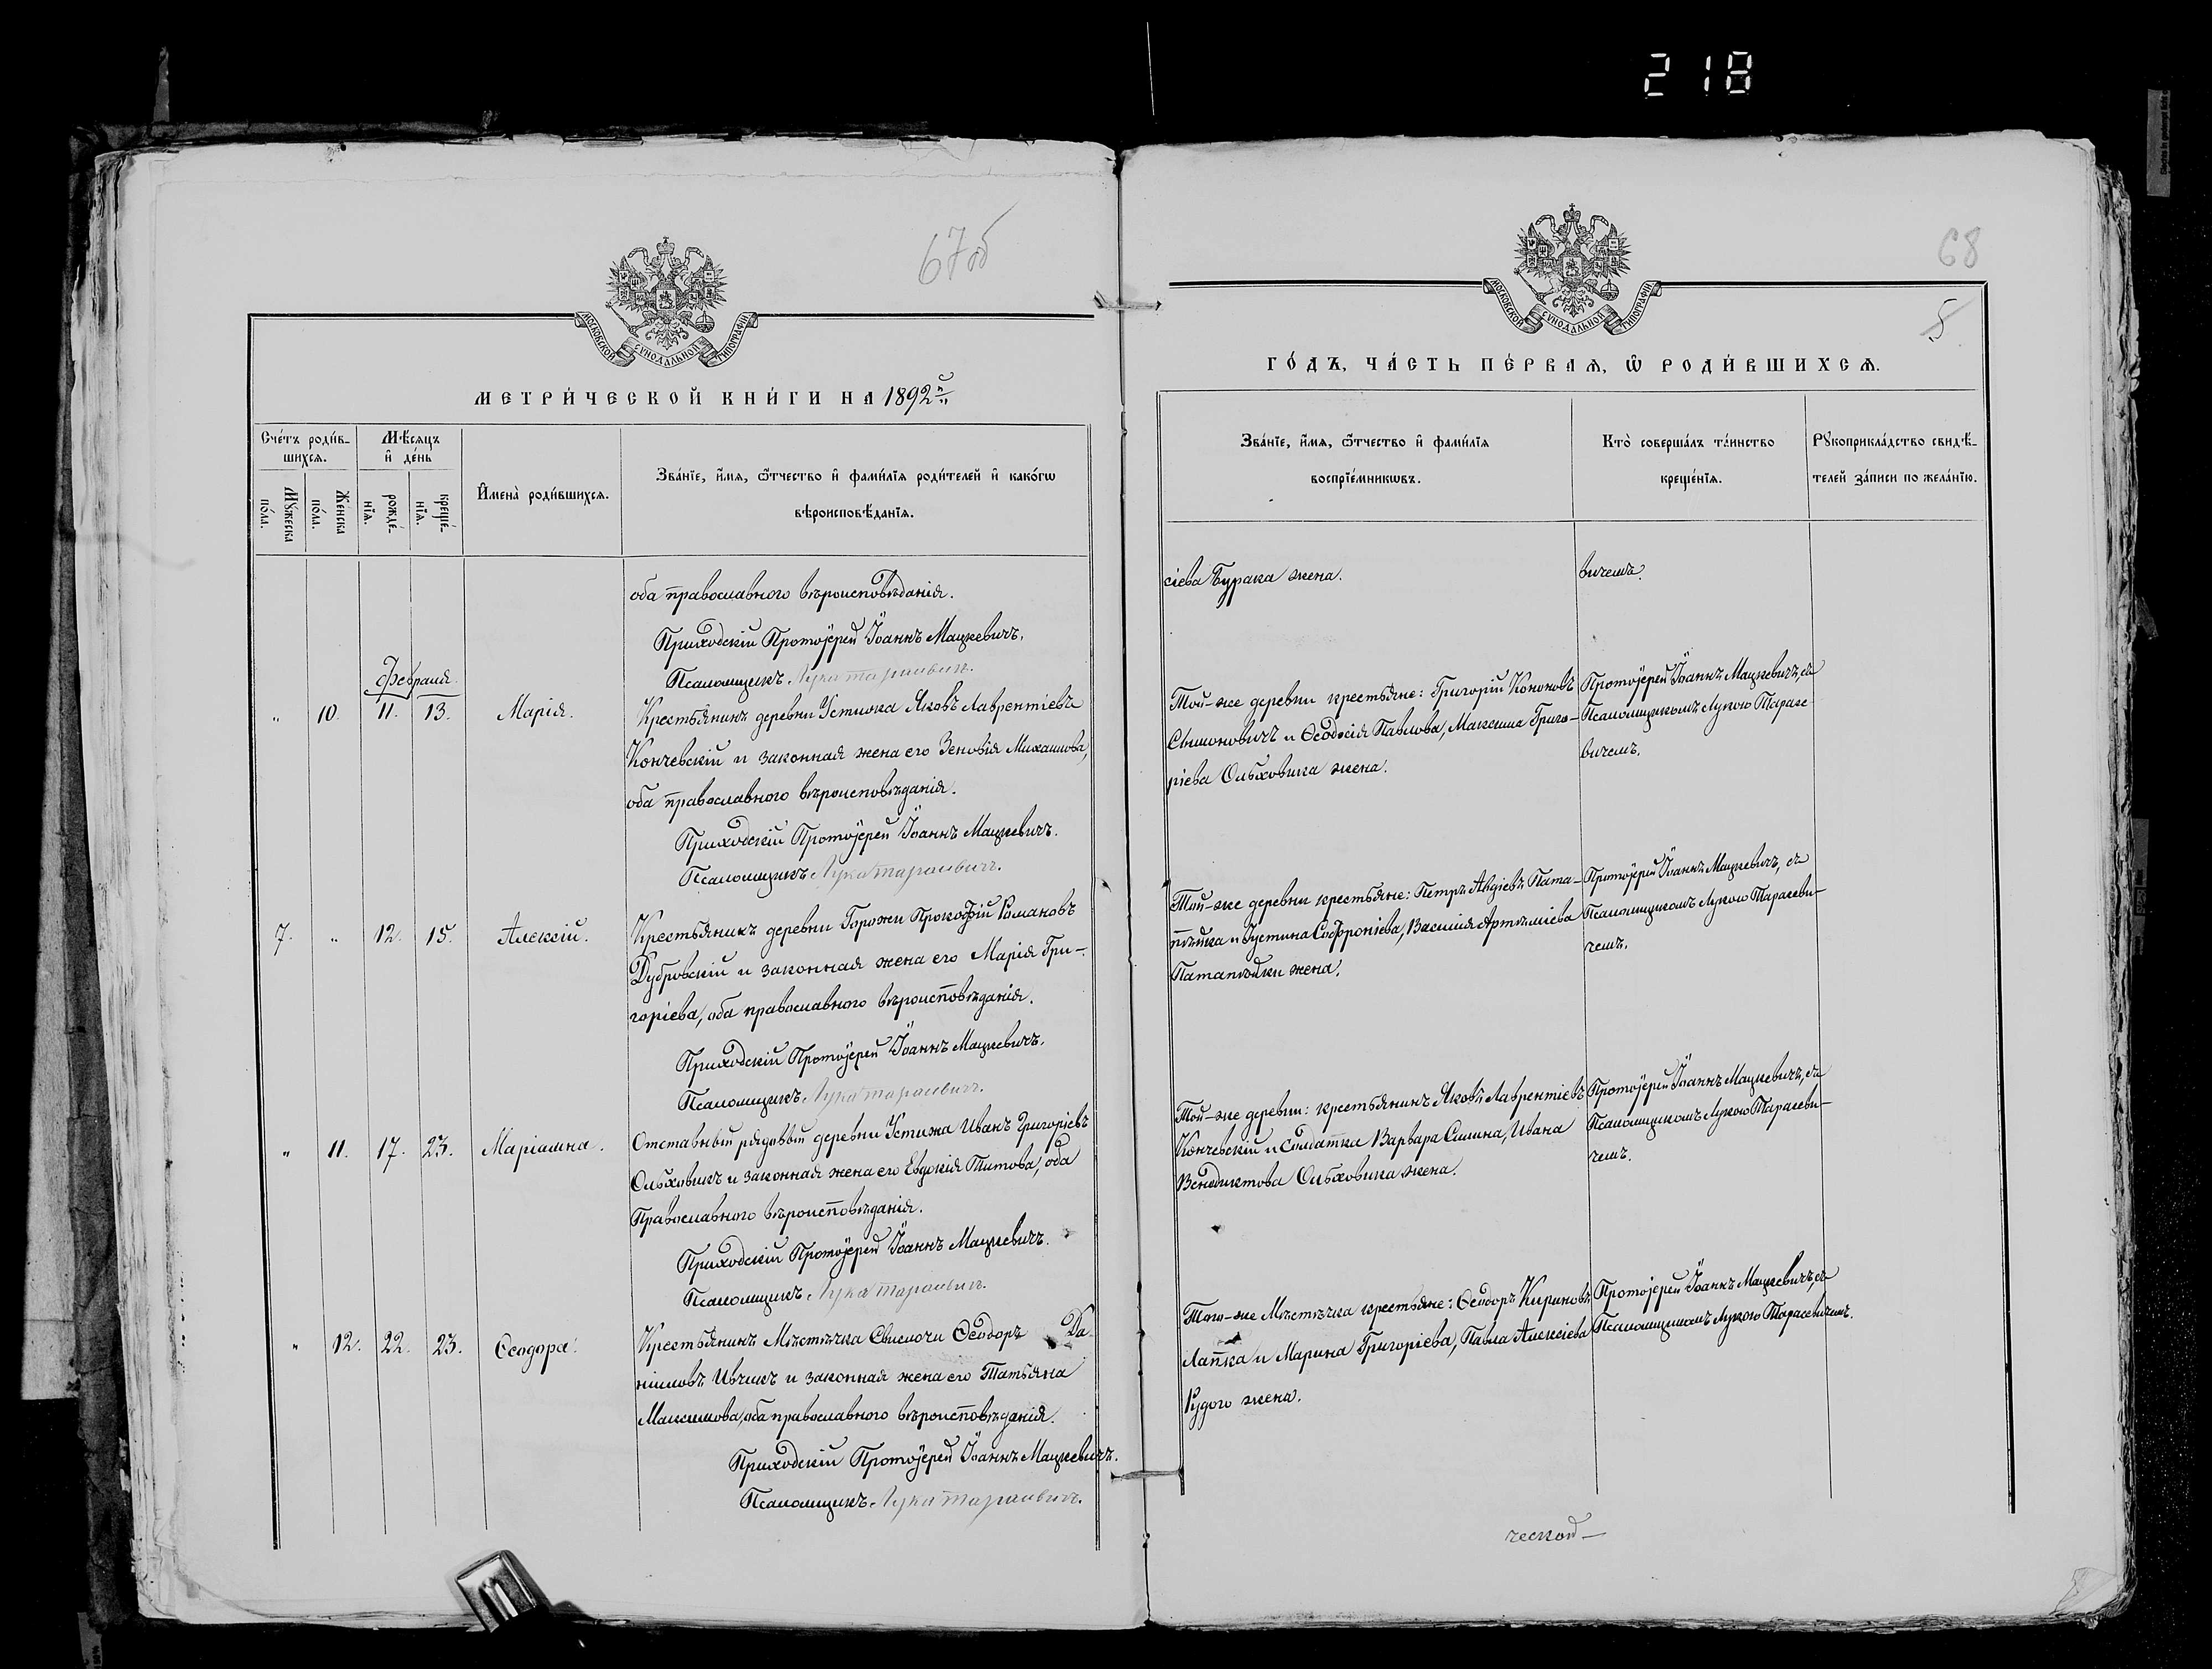 218
67об
МОСКОВСКОЙ СѴНОДАЛЬНОЙ ТИПОГРАФІИ
МЕТРИ́ЧЕСКОЙ КНИ́ГИ НА 1892й
Сче́тъ роди́в-
шихсѧ.
Мѣ́сяцъ
и҆ де́нь
Мꙋ́жеска
по́ла.
Же́нска
по́ла.
рожде́-
нїѧ.
креще́-
нїѧ.
И҆мена̀ роди́вшихсѧ.
Зва́нїе, и҆́мѧ, ѿ́чество и҆ фами́лїѧ роди́телей и҆ како́гѡ
вѣроисповѣ́данїѧ.
оба православнаго вѣроисповѣданія.
Приходскій Протоіерей Іоаннъ Мацкевичъ.
Псаломщикъ Лука Тарасевичъ.
Февраля
„ 10. 11. 13. Марія. Крестьянинъ деревни Устижа Яковъ Лаврентіевъ
Кончевскій и законная жена его Зеновія Михаилова,
оба православнаго вѣроисповѣданія.
Приходскій Протоіерей Іоаннъ Мацкевичъ.
Псаломщикъ Лука Тарасевичъ.
7. „ 12. 15. Алексій. Крестьянинъ деревни Горожи Прокофій Романовъ
Дубровскій и законная жена его Марія Гри-
горіева, оба православнаго вѣроисповѣданія.
Приходскій Протоіерей Іоаннъ Мацкевичъ.
Псаломщикъ Лука Тарасевичъ.
„ 11. 17. 23. Маріамна. Отставный рядовый деревни Устижа Иванъ Григоріевъ
Ольховикъ и законная жена его Евдокія Титова, оба
Православнаго вѣроисповѣданія.
Приходскій Протоіерей Іоаннъ Мацкевичъ.
Псаломщикъ Лука Тарасевичъ.
„ 12. 22. 23. Ѳеодора. Крестьянинъ Мѣстечка Свислочи Ѳеодоръ Да-
ніиловъ Ивчикъ и законная жена его Татьяна
Максимова, оба православнаго вѣроисповѣданія.
Приходскій Протоіерей Іоаннъ Мацкевичъ.
Псаломщикъ Лука Тарасевичъ.
68
5
МОСКОВСКОЙ СѴНОДАЛЬНОЙ ТИПОГРАФІИ
ГО́ДЪ, ЧА́СТЬ ПЕ́РВАѦ, Ѡ҆ РОДИ́ВШИХСѦ.
Зва́нїе, и҆́мѧ, ѿ́чество и҆ фами́лїѧ
воспрїе́мникѡвъ.
Кто̀ соверша́лъ та́инство
креще́нїѧ.
Рꙋкоприкла́дство свидѣ́-
телей за́писи по жела́нїю.
сіева Бурака жена.
вичемъ.
Той-же деревни крестьяне: Григорій Кононовъ
Симоновичъ и Ѳеодосія Павлова, Максима Григо-
ріева Ольховика жена.
Протоіерей Іоаннъ Мацкевичъ, съ
Псаломщикомъ Лукою Тарасе-
вичемъ.
Той-же деревни крестьяне: Петръ Авдіевъ Пата-
пѣйка и Іустина Софроніева, Василія Артеміева
Патапѣйки жена.
Протоіерей Іоаннъ Мацкевичъ, съ
Псаломщикомъ Лукою Тарасеви-
чемъ.
Той-же деревни: крестьянинъ Яковъ Лаврентіевъ
Кончевскій и Солдатка Варвара Силина, Ивана
Венедиктова Ольховика жена.
Протоіерей Іоаннъ Мацкевичъ, съ
Псаломщикомъ Лукою Тарасеви-
чемъ.
Того-же Мѣстечка крестьяне: Ѳеодоръ Кириловъ
Лапка и Марина Григоріева, Павла Алексіева
Рудого жена.
Протоіерей Іоаннъ Мацкевичъ, съ
Псаломщикомъ Лукою Тарасевичемъ.
ческой—